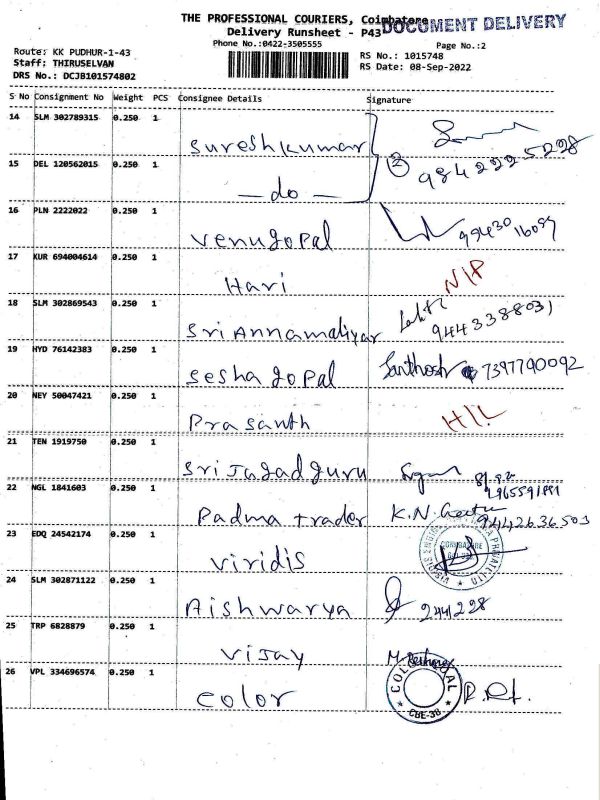 THE PROFESSIONAL COURIERS, Coimbatore
DOCUMENT DELIVERY
Delivery Runsheet - P43
Phone No.:0422-3505555
Page No.:2
Route: KK PUDHUR-1-43
RS No.: 1015748
Staff: THIRUSELVAN
RS Date: 08-Sep-2022
DRS No.: DCJB101574802
S No Consignment No Weight PCS Consignee Details Signature
14 SLM 302789315 0.250 1
Sureshkumar
② 9842225298
15 DEL 120562015 0.250 1
— do —
16 PLN 2222022 0.250 1
Venugopal
99430 16059
17 KUR 694004614 0.250 1
Hari
N/P
18 SLM 302869543 0.250 1
Sri Annamaliyar
9443388031
19 HYD 76142383 0.250 1
Seshagopal
Santhosh 7397790092
20 NEY 50047421 0.250 1
Prasanth
H/L
21 TEN 1919750 0.250 1
Sri Jagadguru
22 NGL 1841603 0.250 1
Padma trader
K.N. Geetha
9442636503
23 EDQ 24542174 0.250 1
Viridis
COIMBATORE
24 SLM 302871122 0.250 1
Aishwarya
2441228
25 TRP 6828879 0.250 1
Vijay
26 VPL 334696574 0.250 1
Color
CBE-38